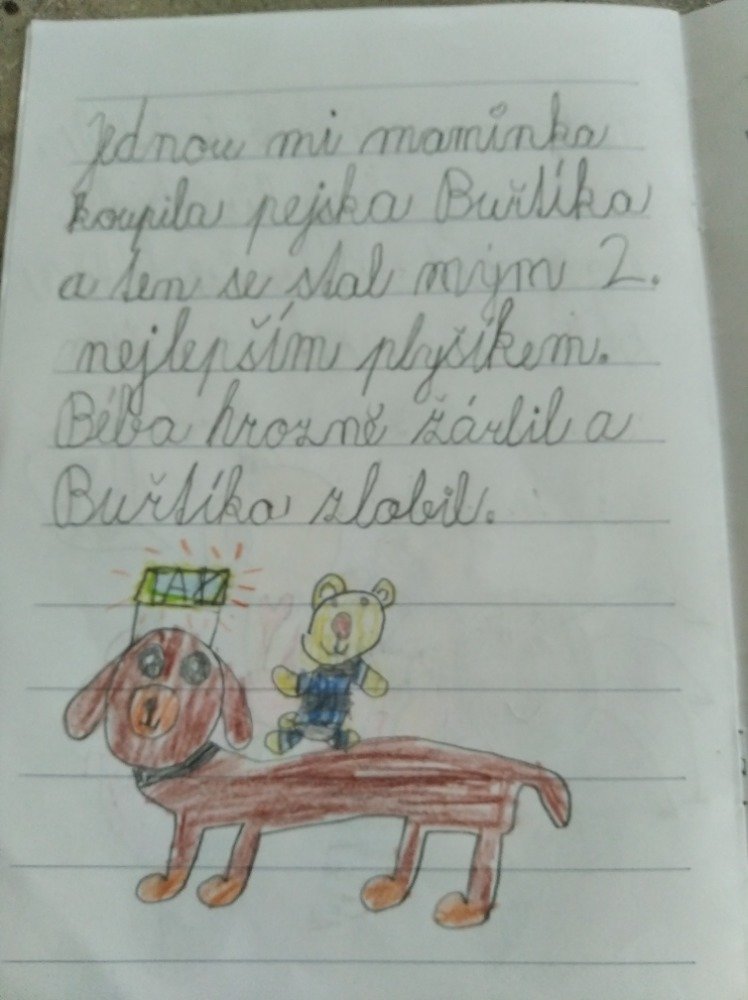 Jednou mi maminka
koupila pejska Buřtíka
a ten se stal mým 2.
nejlepším plyšíkem.
Béba hrozně žárlil a
Buřtíka zlobil.